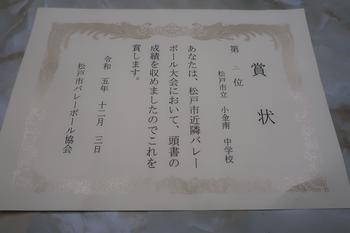 賞状
第二位
松戸市立 小金南 中学校
あなたは、松戸市近隣バレー
ボール大会において、頭書の
成績を収めましたのでこれを
賞します。
令和 五年 十二月 三日
松戸市バレーボール協会